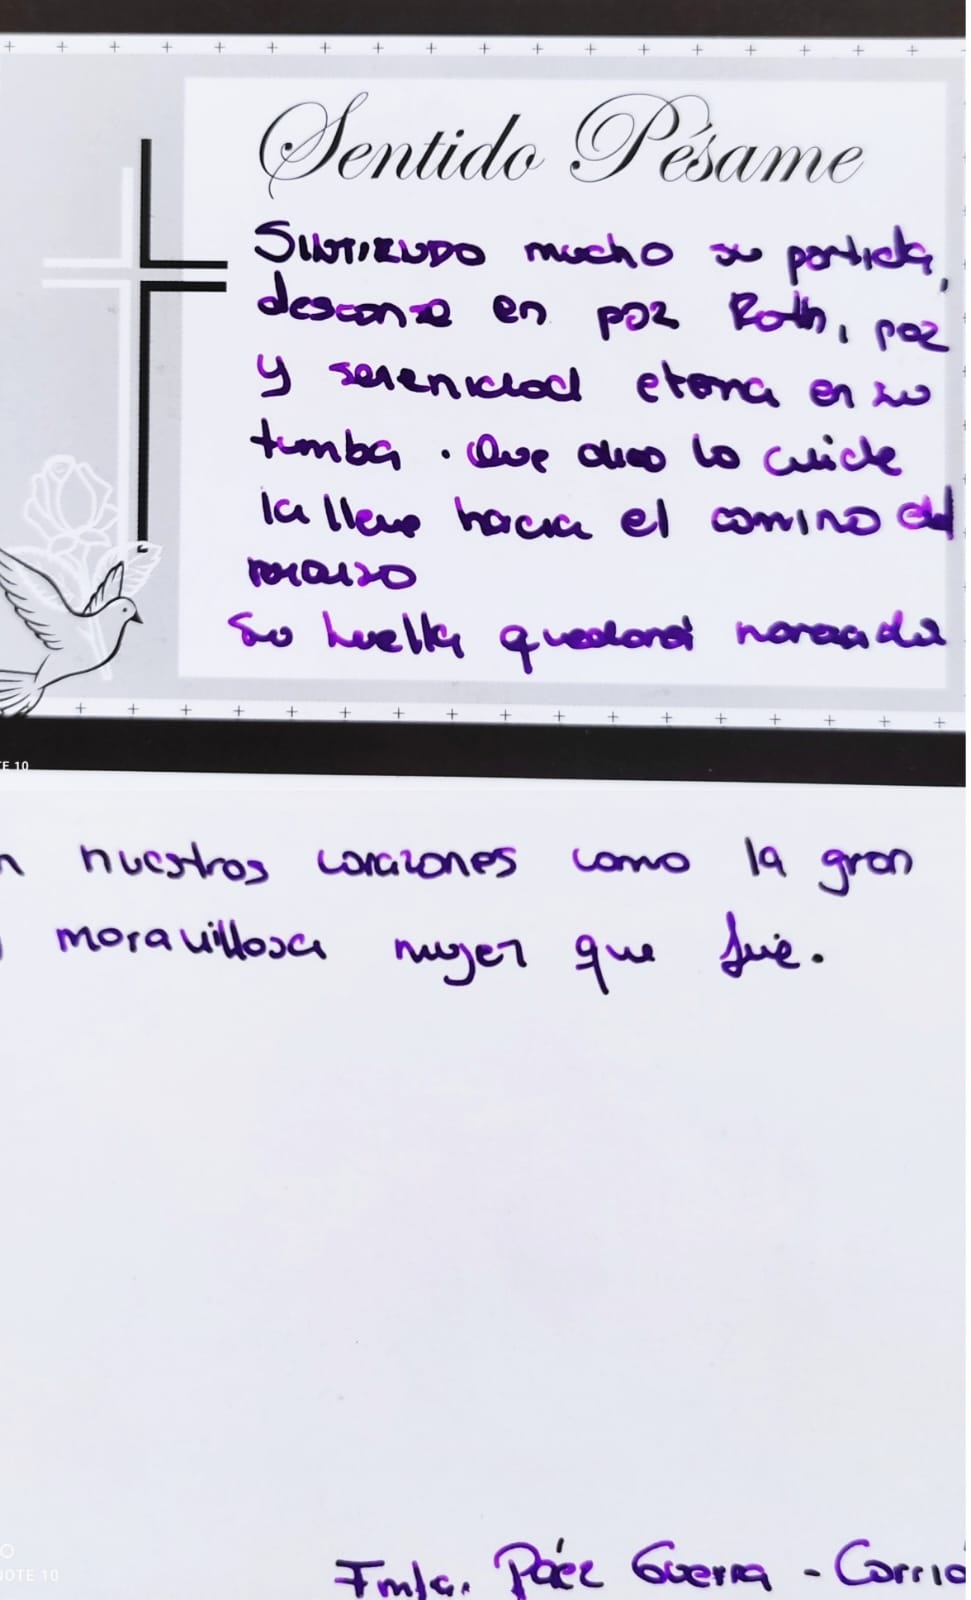 Sentido Pésame
SINTIENDO mucho su partida,
descanse en paz Roth, paz
y serenidad eterna en su
tumba. Que dios lo cuide
la lleve hacia el camino del
Su huella quedará marcada
nuestros corazones como la gran
maravillosa mujer que fue.
Fmla. Páez Guerra - Corrio
OTE 10